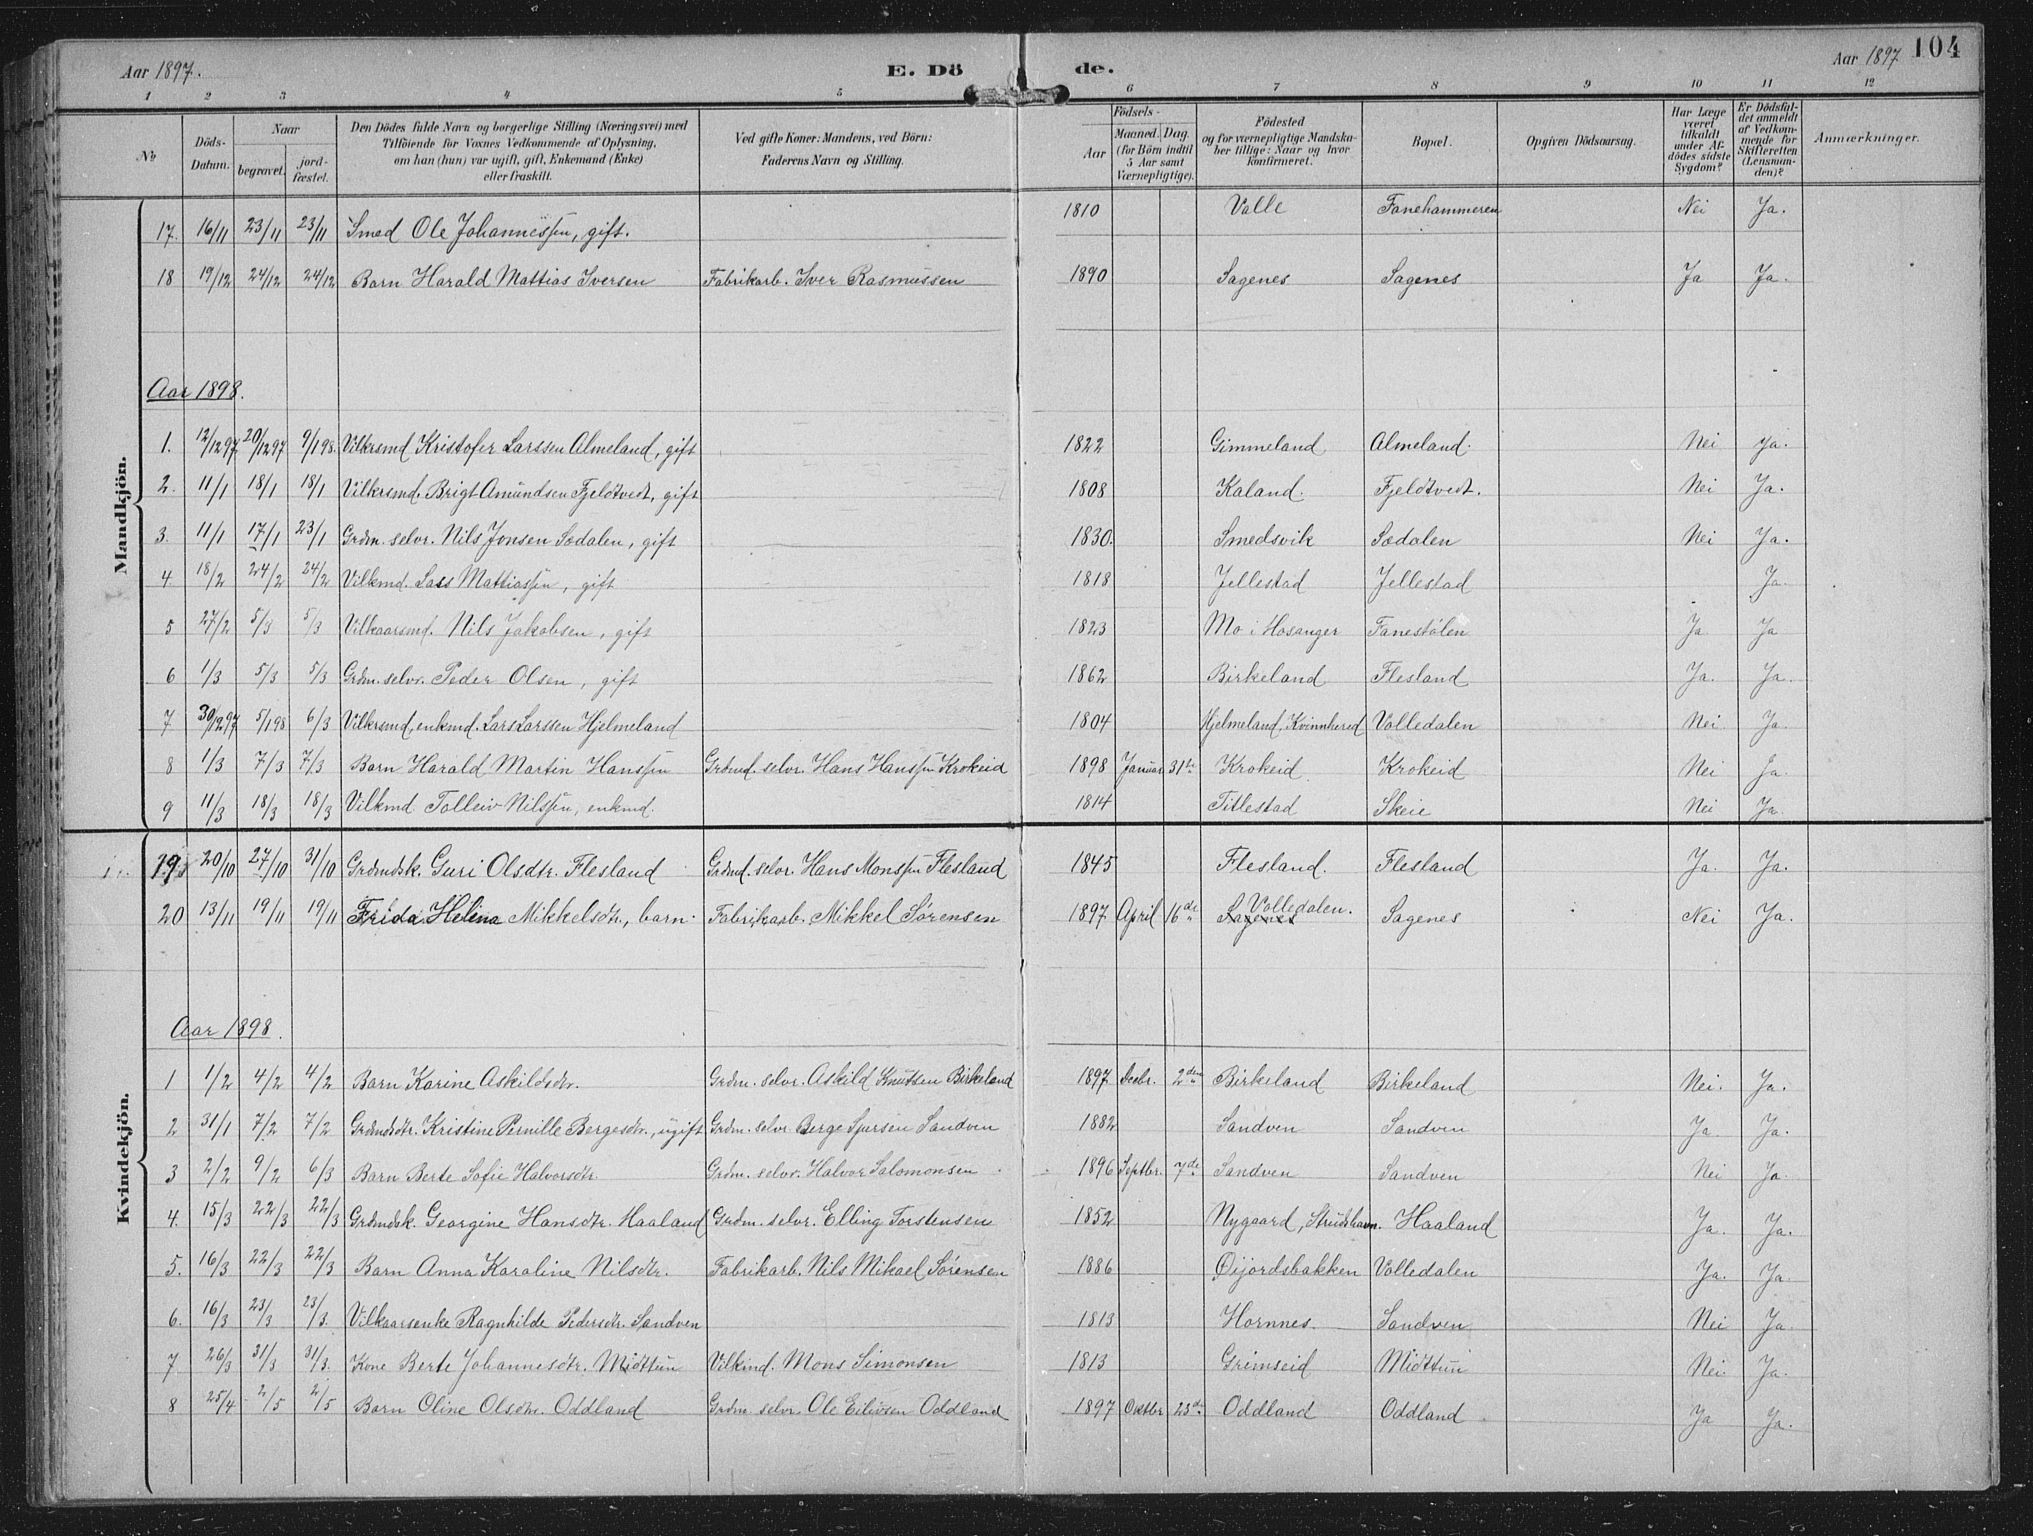 Aar 1897.
E. Dö
de.
Aar 1897
104
1 2 3 4 5 6 7 8 9 10 11 12
No
Döds-Datum.
Naar
begravet.
jord-fæstet.
Den Dödes fulde Navn og borgerlige Stilling (Næringsvei) med
Tilföiende for Voxnes Vedkommende af Oplysning,
om han (hun) var ugift, gift, Enkemand (Enke)
eller fraskilt.
Ved gifte Koner: Mandens, ved Börn:
Faderens Navn og Stilling.
Födsels-
Aar
Maaned. Dag.
(for Börn indtil
5 Aar samt
Værnepligtige).
Födested
og for værnepligtige Mandska-
ber tillige: Naar og hvor
konfirmeret.
Bopæl.
Opgiven Dödsaarsag.
Har Læge
været
tilkaldt
under Af-
dödes sidste
Sygdom?
Er Dödsfal-
det anmeldt
af Vedkom-
mende for
Skifteretten
(Lensman-
den)?
Anmærkninger.
Mandkjön.
17. 16/11 23/11 23/11 Smed Ole Johannessen, gift. 1810 Valle Fanehammeren Nei Ja.
18 19/12 24/12 24/12 Barn Harald Mattias Iversen Fabrikarb. Iver Rasmussen 1890 Sagenes Sagenes Ja Ja.
Aar 1898.
1. 12/12 97 20/12 97 9/1 98. Vilkrsmd Kristofer Larssen Almeland, gift 1822 Gimmeland Almeland. Nei Ja.
2. 11/1 18/1 18/1 Vilkrsmd. Brigt Amundsen Fjeldtvedt, gift 1808 Kaland. Fjeldtvedt. Nei Ja.
3. 11/1 17/1 23/1 Grdm. selvr. Nils Jonsen Sædalen, gift 1830. Smedsvik Sædalen Nei Ja.
4. 18/2 24/2 24/2 Vilkmd. Lass Mattiassen, gift 1818 Jellestad Jellestad Ja.
5 27/2 5/3 5/3 Vilkaarsmd. Nils Jakobsen, gift 1823 Mo i Hosanger Fanestölen Ja. Ja
6 1/3 5/3 5/3 Grdm. selvr. Peder Olsen, gift 1862 Birkeland Flesland Ja. Ja.
7 30/12 97 5/1 98 6/3 Vilkrsmd, enkmd. Lars Larssen Hjelmeland 1804 Hjelmeland, Kvinnhered Valledalen Nei. Ja.
8 1/3 7/3 7/3 Barn Harald Martin Hanssen Grdmd. selvr. Hans Hanssen Krokeid 1898 Januar 31te Krokeid Krokeid Nei Ja.
9 11/3 18/3 18/3 Vilkmd Tolleiv Nilssen, enkmd. 1814 Titlestad Skeie Nei Ja.
Kvindekjön.
19 20/10 27/10 31/10 Grdmdsk. Guri Olsdtr. Flesland Grdmd. selvr. Hans Monssen Flesland 1845 Flesland. Flesland Ja. Ja.
20 13/11 19/11 19/11 Frida Helina Mikkelsdtr., barn. Fabrikarb. Mikkel Sørensen 1897 April 16de Sagenes Valledalen. Sagenes Nei Ja.
Aar 1898.
1 1/2 4/2 4/2 Barn Karine Askildsdtr. Grdm. selvr. Askild Knutsen Birkeland 1897 Decbr. 2den Birkeland Birkeland Nei. Ja.
2 31/1 7/2 7/2 Grdmdsdtr. Kristine Pernille Bergesdtr., ugift Grdm. selvr. Berge Sjursen Sandven 1882 Sandven Sandven Ja. Ja.
3 2/2 9/2 6/3 Barn Berte Sofie Halvorsdtr. Grdm. selvr. Halvor Salomonsen 1896 Septbr. 7de Sandven Sandven Nei Ja.
4. 15/3 22/3 22/3 Grdmdsk. Georgine Hansdtr. Haaland Grdm. selvr. Elling Torstensen 1852 Nygaard, Strudshavn. Haaland Ja. Ja.
5. 16/3 22/3 22/3 Barn Anna Karoline Nilsdtr. Fabrikarb. Nils Mikael Sørensen 1886 Øijordsbakken Valledalen Ja. Ja.
6. 16/3 23/3 23/3. Vilkaarsenke Ragnhilde Pedersdtr. Sandven 1813 Hornnes. Sandven Nei Ja.
7 26/3 31/3 31/3. Kone Berte Johannesdtr. Midttun Vilkmd. Mons Simonsen 1813 Grimseid Midttun Nei. Ja.
8 25/4 2/5 2/5 Barn Oline Olsdtr. Oddland Grdm. selvr. Ole Eilivsen Oddland 1897 Oktbr 23de Oddland Oddland Ja Ja.